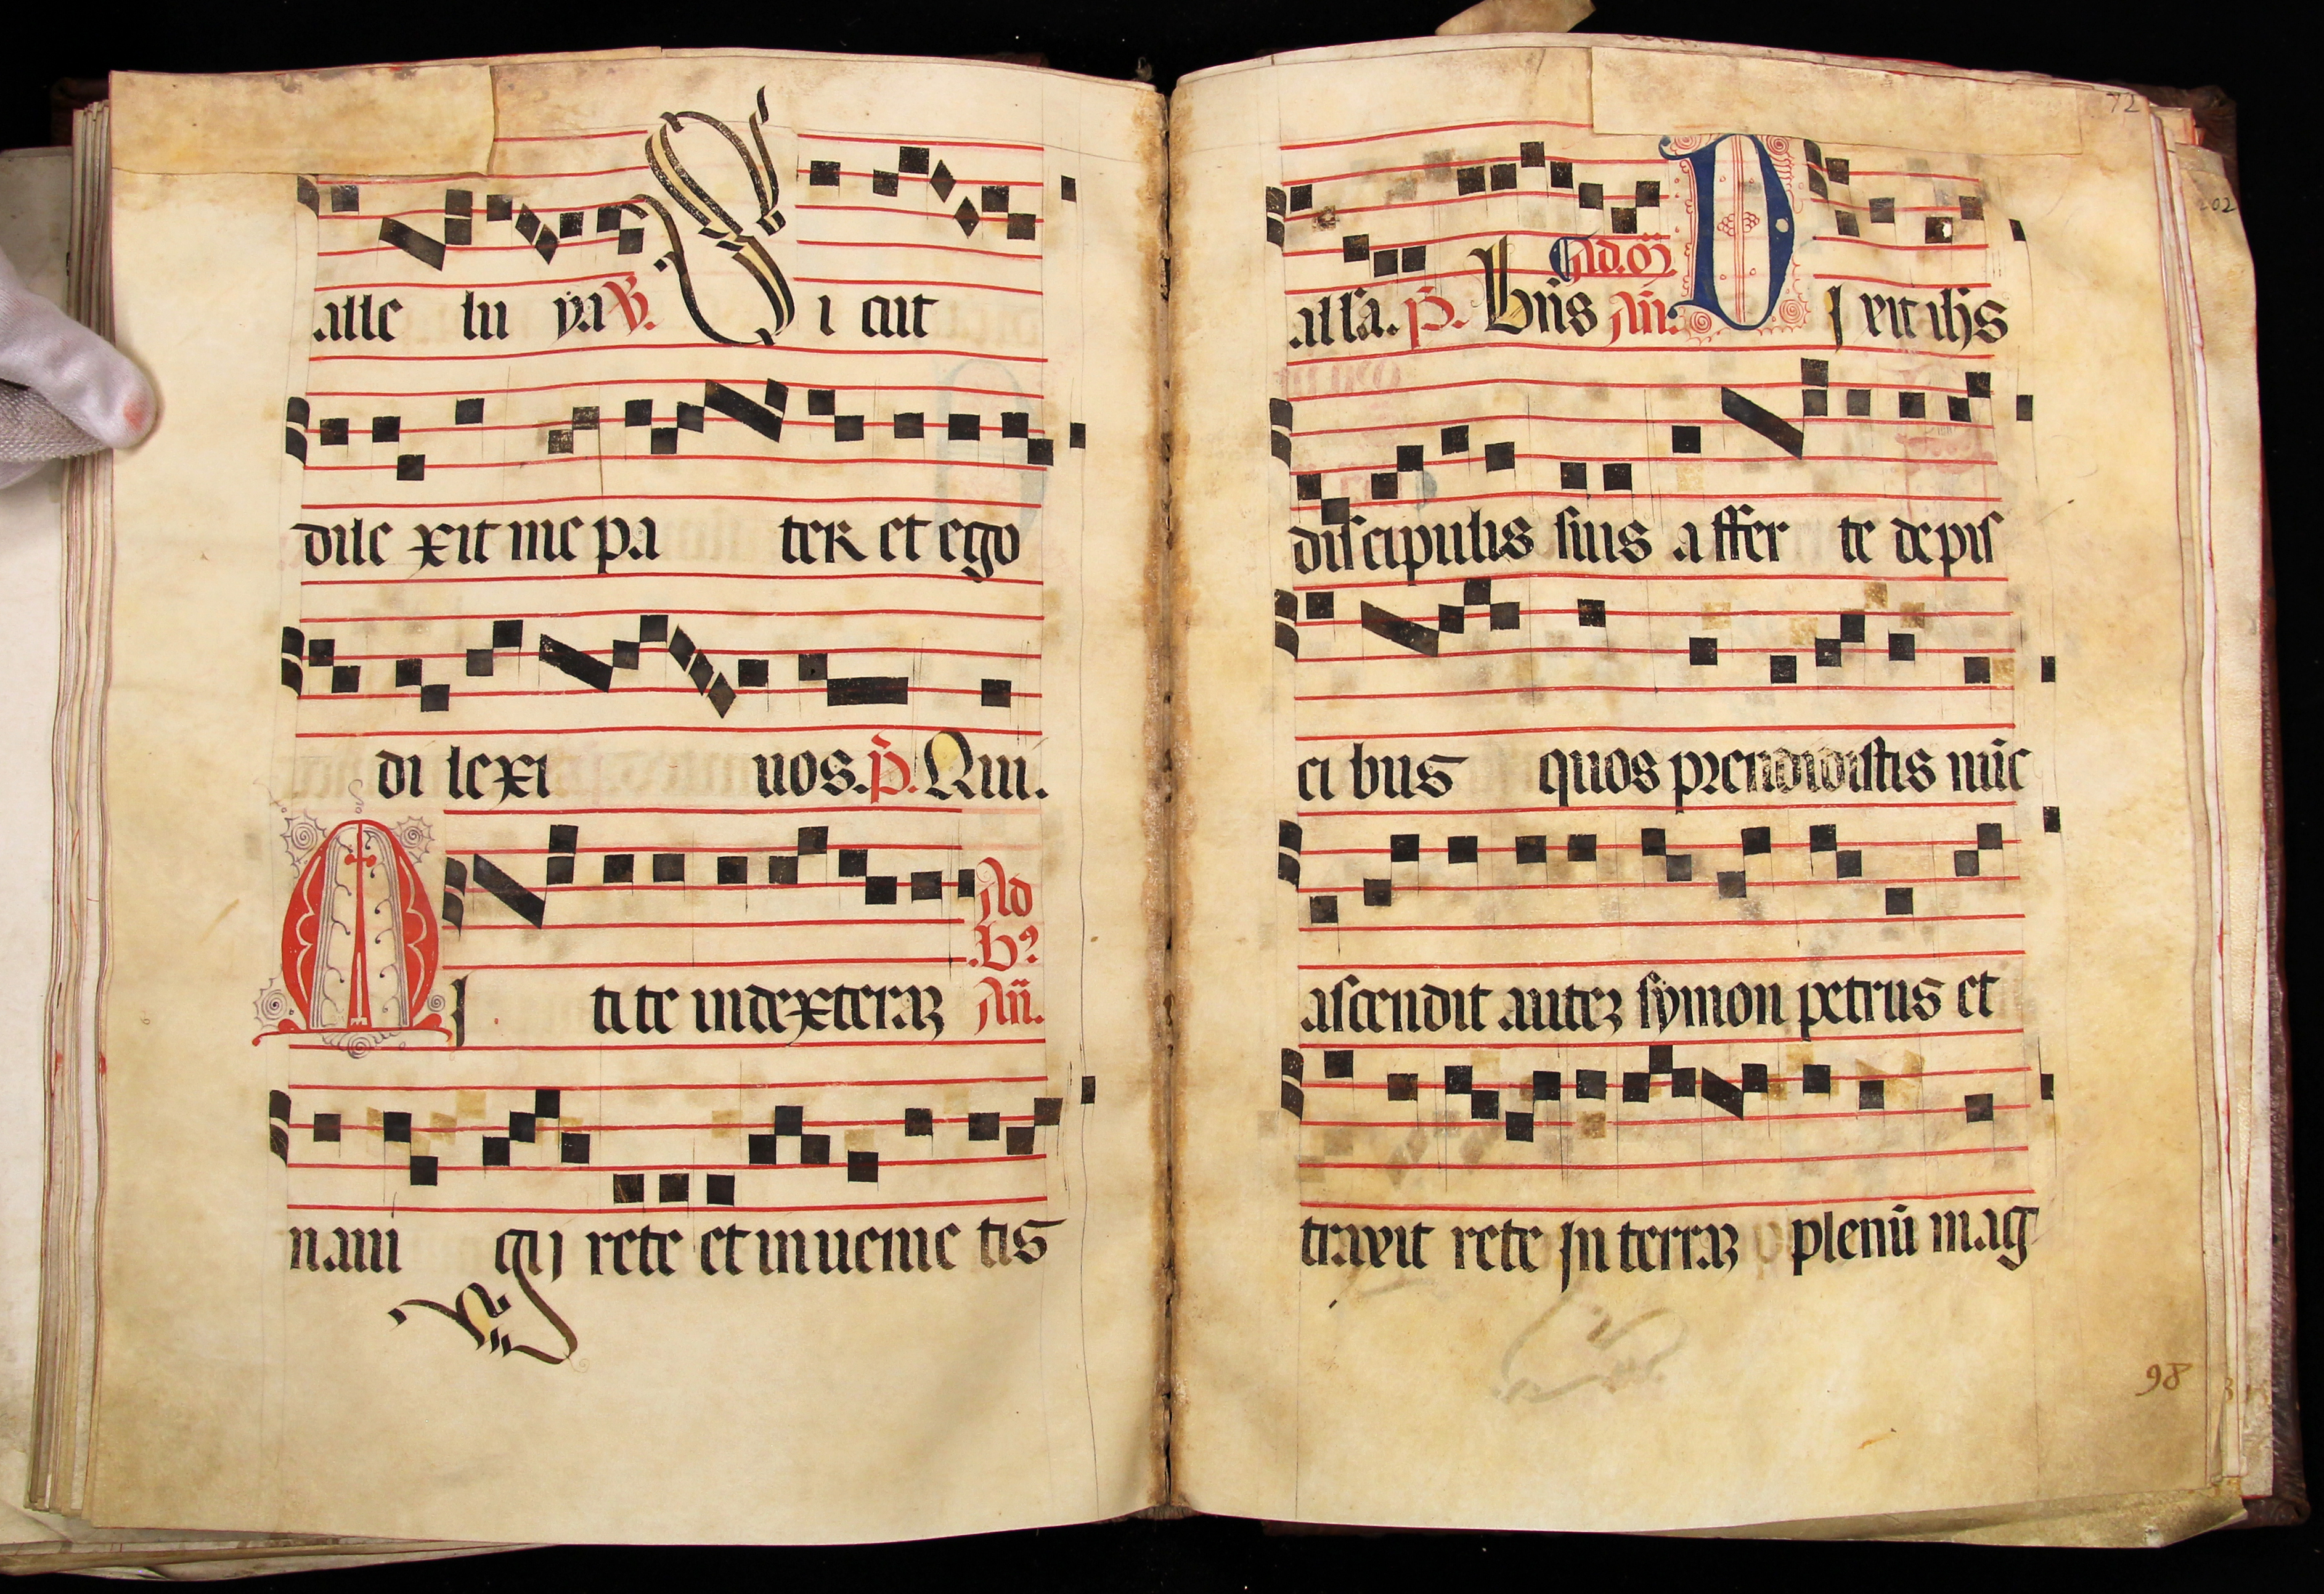 alle lu ya ℣. Si cut
dile xit me pa ter et ego
di lexi uos. p̄. Qui.
MI ti te in dexteraꝫ Ad
.B.
Añ.
naui gij rete et inuenie tis
72
202
all'a. p̄. Bñs Ad. Añ. DJ xit ihs
discipulis suis a ffer te de pis
ci bus quos prendidistis nūc
ascendit auteꝫ symon petrus et
traxit rete Jn terraꝫ plenū mag
98